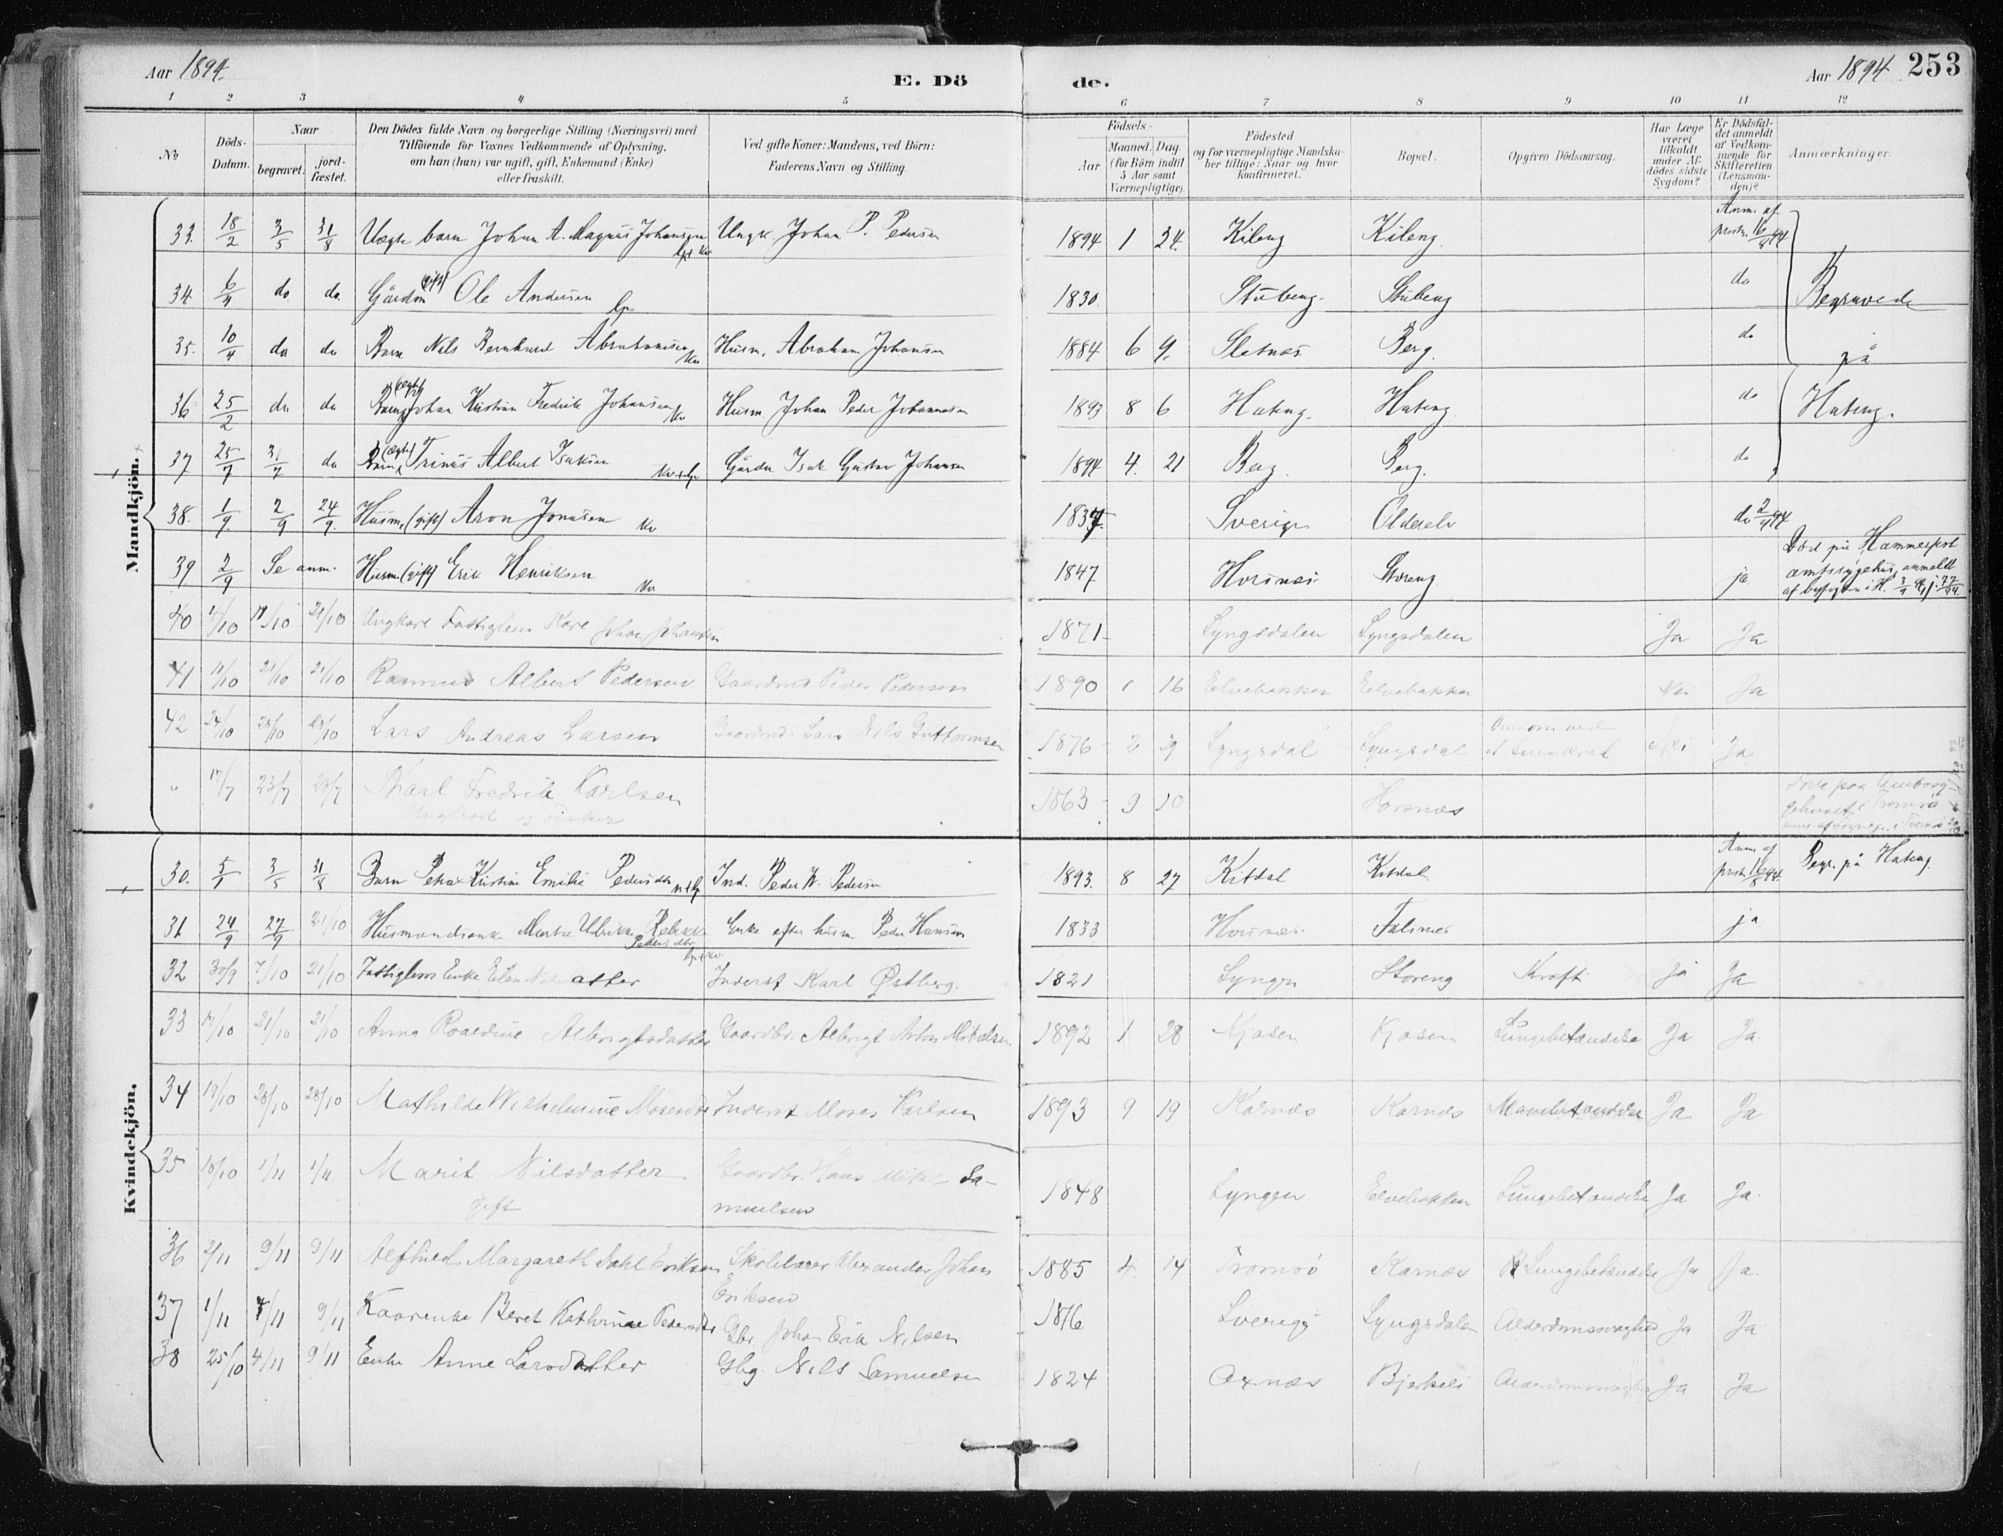 Aar 1894. E. Dö de. Aar 1894. 253
1 2 3 4 5 6 7 8 9 10 11 12
No. Döds-Datum. Naar begravet. jord-fæstet. Den Dödes fulde Navn og borgerlige Stilling (Næringsvei) med Tilföiende for Voxnes Vedkommende af Oplysning, om han (hun) var ugift, gift, Enkemand (Enke) eller fraskilt. Ved gifte Koner: Mandens, ved Börn: Faderens Navn og Stilling. Födsels- Aar Maaned. Dag. (for Börn indtil 5 Aar samt Værnepligtige). Födested og for værnepligtige Mandska-ber tillige: Naar og hvor konfirmeret. Bopæl. Opgiven Dödsaarsag. Har Læge været tilkaldt under Af-dödes sidste Sygdom? Er Dödsfal-det anmeldt af Vedkom-mende for Skifteretten (Lensman-den)? Anmærkninger.
Mandkjön.
33. 18/2 3/5 31/8 Uægte barn Johan A. Magnus Johansen Ungk. Johan P. Pedersen 1894 1 24. Kileng Kileng. Anm. af
34 6/4 do do. Gårdm (gift) Ole Andersen lp 1830. Stubeng. Stubeng do Begravede
35. 10/4 do do Barn Nils Bernhard Abrahamsen kv Husm. Abraham Johansen 1884 6 9. Sletnæs Berg. do på
36 25/2 do do Barn (ægte) Johan Kristian Fredrik Johansen kv Husm Johan Peder Johannesen 1893 8 6 Hateng. Hateng do Hateng.
37 25/7 31/7 do Barn (ægte) Trinus Albert Isaksen Gårdm Isak Gustav Johansen 1894 4. 21 Berg. Berg. do
38. 1/9. 2/9 24/9. Husm. (gift) Aron Jonassen kv 1837. Sverige Olderelv do 2/9 94
39 2/9 Se anm. Husm (gift) Erik Henriksen kv 1847 Horsnæs Storeng. ja. Död på Hammerfest amtssygehus, anmeldt
40 17/10 21/10 Ungkarl Fattiglem Kare Johan Johansen 1871 Lyngsdalen Lyngsdalen Ja Ja
41 11/10 21/10 21/10 Rasmus Albert Pedersen Gaardmd Peder Pedersen 1890 1 16 Elvebakken Elvebakken Nei Ja
42 24/10 28/10 28/10 Lars Andreas Larsen Gaardmd. Lars Nils Guttormsen 1876 2 9 Lyngsdal Lyngsdal Nei Ja
" 17/7 23/7 23/7 Karl Fredrik Karlsen 1863 9 10 Horsnæs
Ungkarl og Fisker
Kvindekjön.
30. 5/1 3/5 31/8 Barn Petra Kristine Emilie Pedersdtr Ind. Peder W. Pedersen 1893. 8 27 Kitdal Kitdal Anm. af prst. 16/8 94. Begr. på Hateng.
31 24/9 27/9 21/10 Husmandsenke Marta Ulrikke Rebekka Pedersdtr Enke efter husm Peder Hansen 1833 Horsnæs Falsnes ja
32 30/9 7/10 21/10 Fattiglem Enke Elen Nilsdatter Inderst Karl Østberg. 1821 Lyngen Storeng Kræft Ja Ja
33 17/10 21/10 21/10 Anna Roaldine Albrigtsdatter Gaardbr. Albrigt Anton Mikalsen 1892 1 28 Kjosen Kjosen Lungebetændelse Ja Ja
34 19/10 28/10 28/10 Mathilde Wilhelmine Mosesdtr Inderst Moses Karlsen 1893 9 19 Karnæs Karnæs Mavebetændelse Ja Ja
35 18/10 1/11 1/11 Marit Nilsdatter Gaardbr. Hans Mikal Sa-
gift muelsen 1848 Lyngen Elvebakken Lungebetændelse Ja Ja.
36 2/11 9/11 9/11 Alfhild Margareth Dahl Eriksen Skolelærer Alexander Johan Eriksen 1885 4. 14 Tromsø Karnæs Lungebetændelse Ja Ja.
37 1/11 4/11 9/11 Kaarenke Beret Kathrine Pedersdtr Gbr. Johan Erik Nilsen 1816 Sverige Lyngsdalen Alderdomssvaghed Ja Ja
38 25/10 4/11 9/11 Enke Anne Larsdatter Gbg. Nils Samuelsen 1824 Oxnæs Bjerkeli Alderdomssvaghed Ja Ja